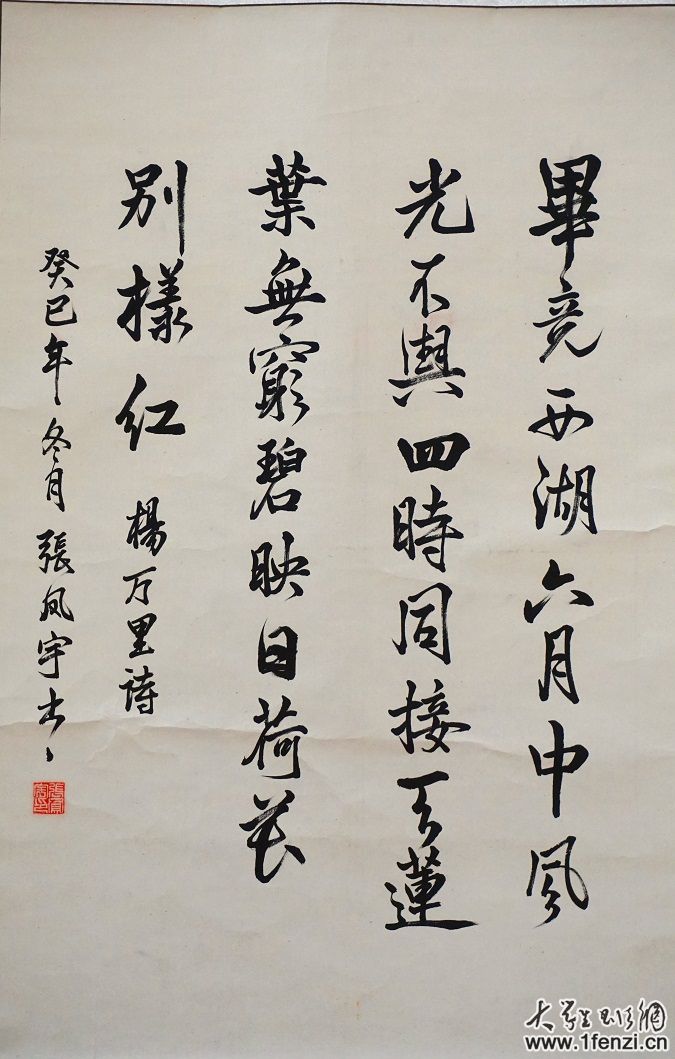 畢竟西湖六月中風
光不與四時同接天蓮
葉無窮碧映日荷花
別樣紅
楊万里詩
癸巳年冬月張鳳宇书
大學生創業網
www.1fenzi.cn